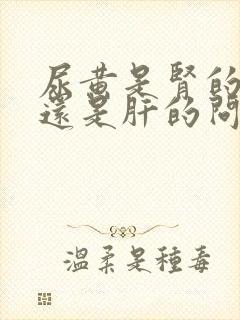 尿黄是腎的
還是肝的問
温柔是種毒